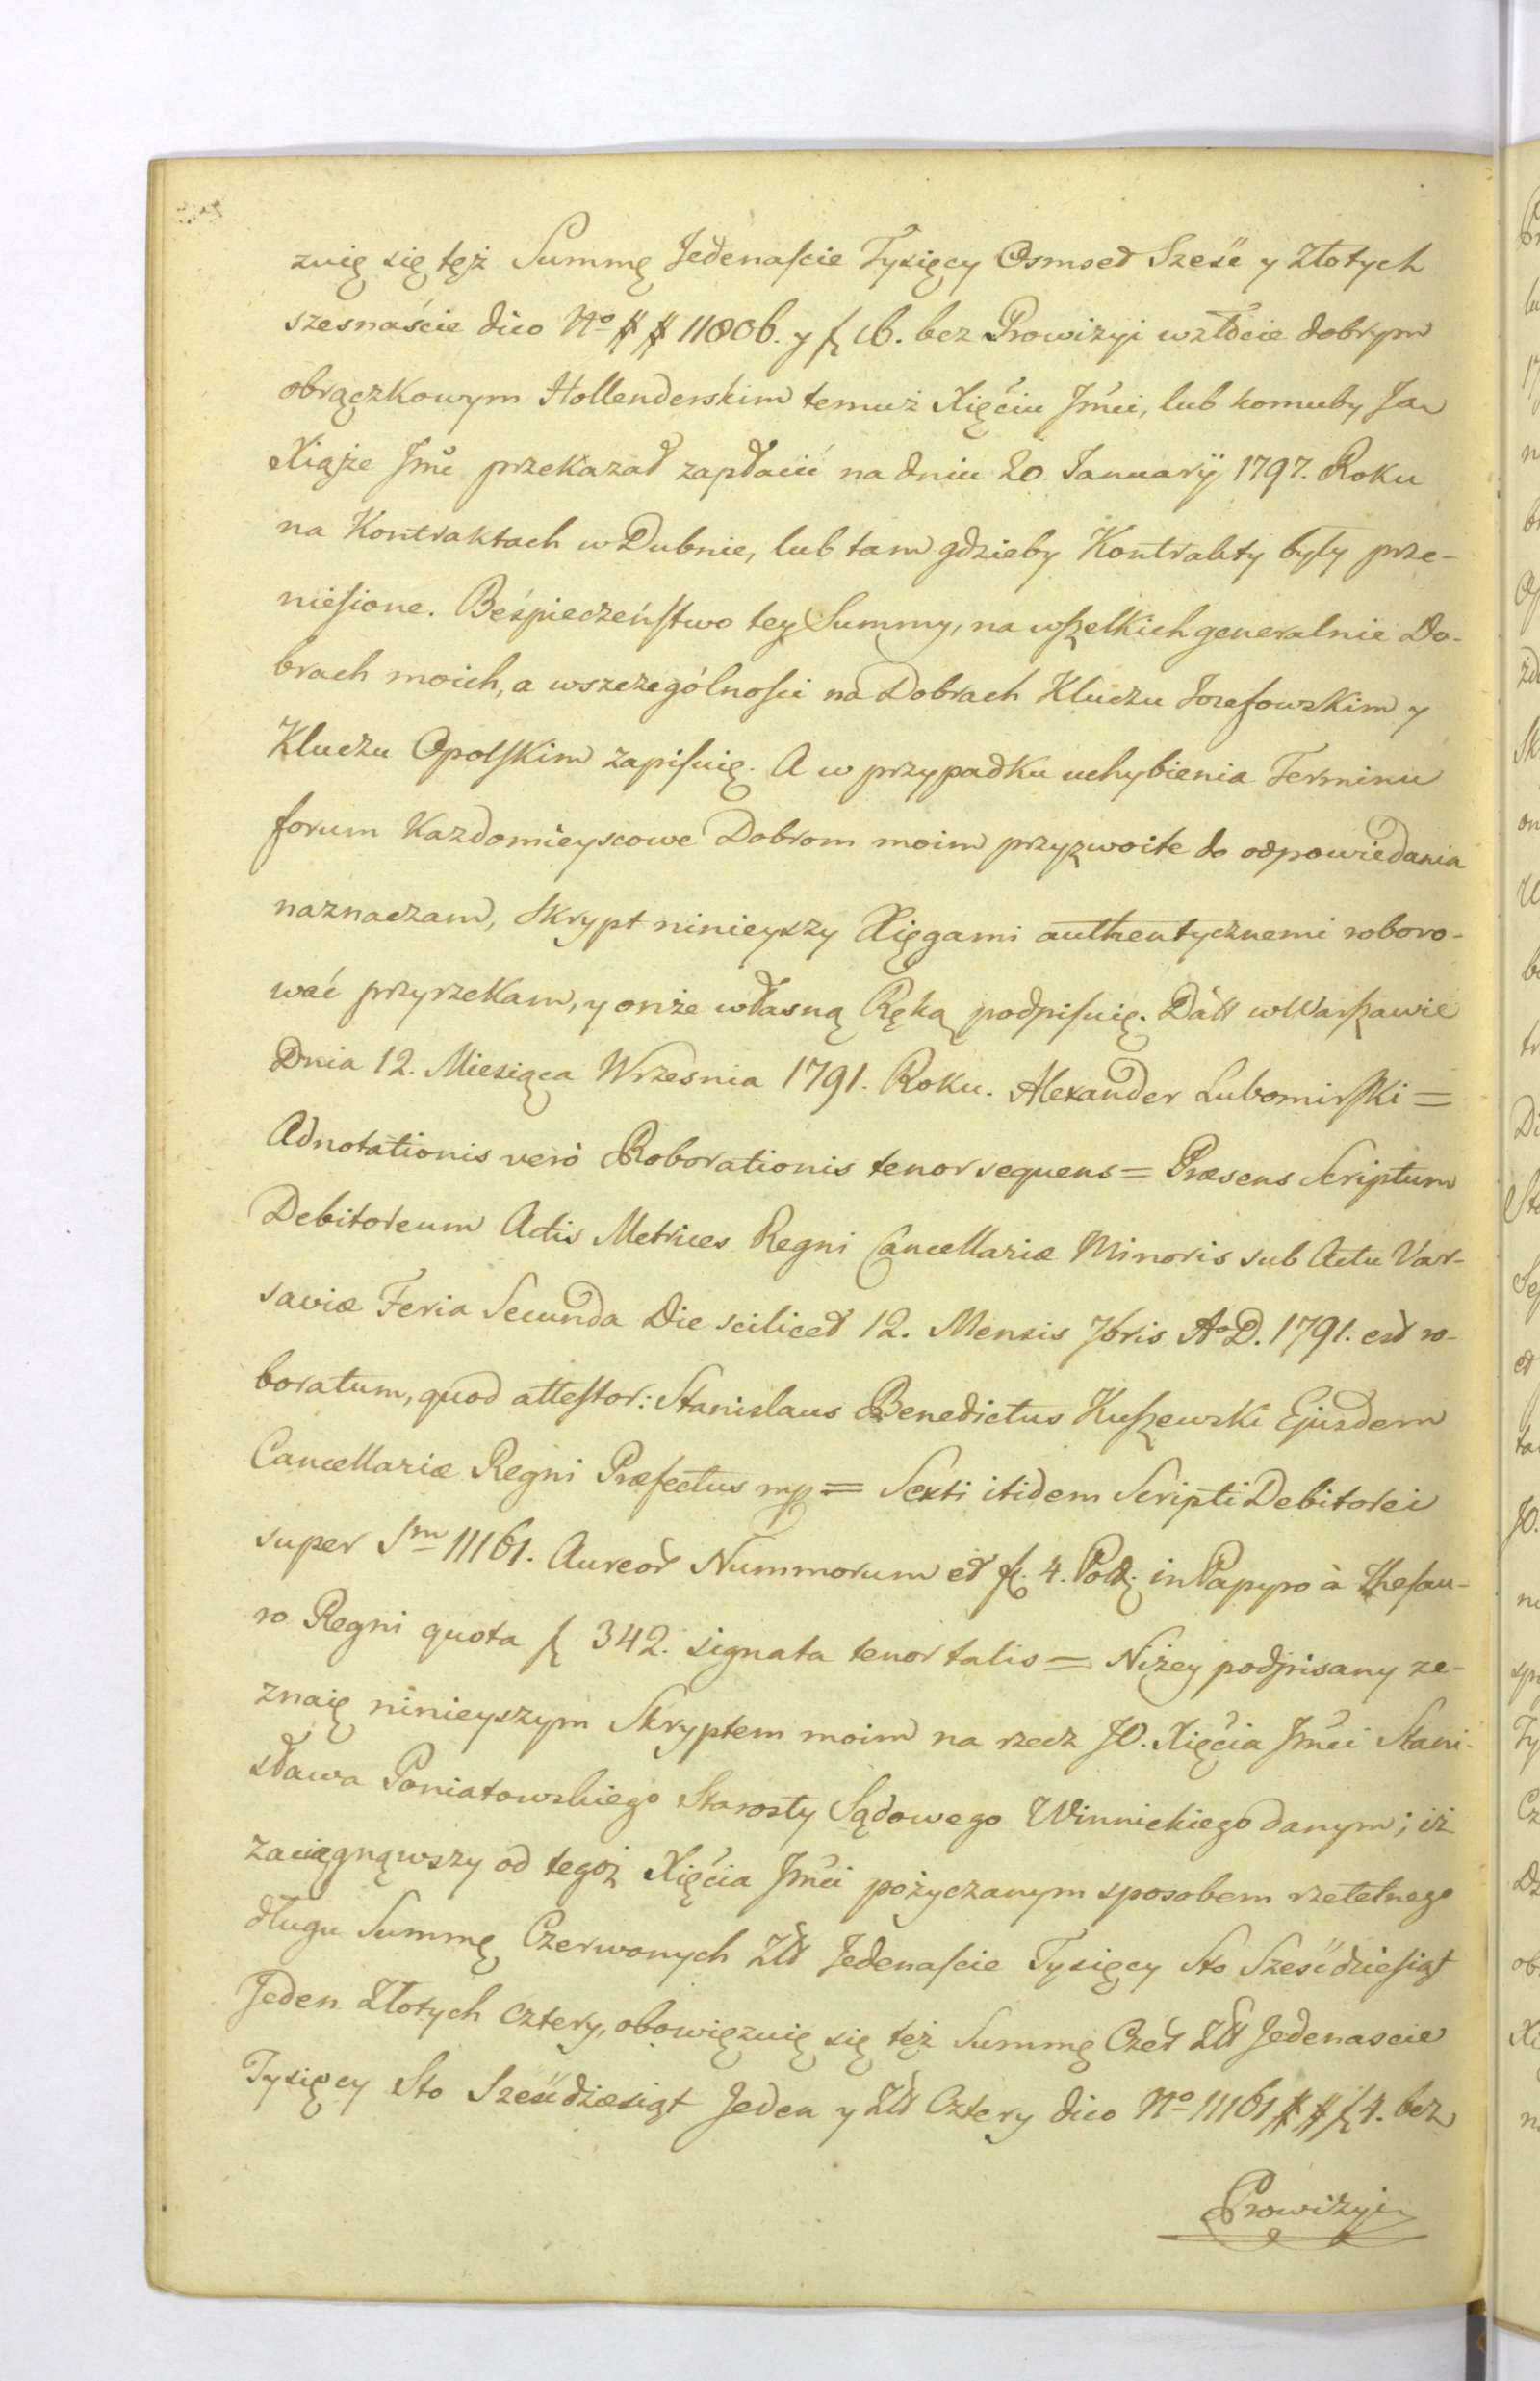 zuię się tęż Summę Jedenaście Tysięcy Osmset Sześć y Złotych
szesnaście dico No ## 11806. y f 16. bez Prowizyi wzłocie dobrym
obrączkowym Hollenderskim temuż Xięciu Jmci, lub komuby Jan
Xiąże Jmc przekazał zapłacić na dniu 20. Januarij 1797. Roku
na Kontraktach w Dubnie, lub tam gdzieby Kontrakty były prze-
niesione. Beśpieczeństwo tey Summy, na wszelkich generalnie Do-
brach moich, a wszczególności na Dobrach Kluczu Jozefowskim y
Kluczu Opolskim zapisuię. A w przypadku uchybienia Terminu
forum Kazdomieyscowe Dobrom moim przyzwoite do odpowiedania
naznaczam, Skrypt ninieyszy Xięgami authentycznemi roboro-
wać przyrzekam, y onże własną Ręką podpisuię. Datt w Warszawie
Dnia 12. Miesiąca Wrzesnia 1791. Roku. Alexander Lubomirski =
Adnotationis verò Roborationis tenor sequens = Præsens Scriptum
Debitoreum Actis Metrices Regni Cancellariæ Minoris sub Actu Var-
saviæ Feria Secunda Die scilicet 12. Mensis 7bris Ao D. 1791. est ro-
boratum, quod attestor: Stanislaus Benedictus Kuszewski Ejusdem
Cancellariæ Regni Præfectus mp = Sexti itidem Scripti Debitorei
super Sm 11161. Aureor Nummorum et fl. 4. Pol: in Papyro à Thesau-
ro Regni quota f 342. signata tenor talis = Niżey podpisany ze-
znaię ninieyszym Skryptem moim na rzecz JO. Xięcia Jmci Stani-
sława Poniatowskiego Starosty Sądowego Winnickiego danym; iż
zaciągnąwszy od tegoż Xięcia Jmci pożyczanym sposobem rzetelnego
długu Summę Czerwonych Złł Jedenaście Tysięcy Sto Sześćdziesiąt
Jeden Złotych cztery, obowięzuię się też Summę Czer Złł Jedenascie
Tysięcy Sto Sześćdziesiąt Jeden y Złł Cztery dico No 11161 ## f 4. bez
Prowizyi